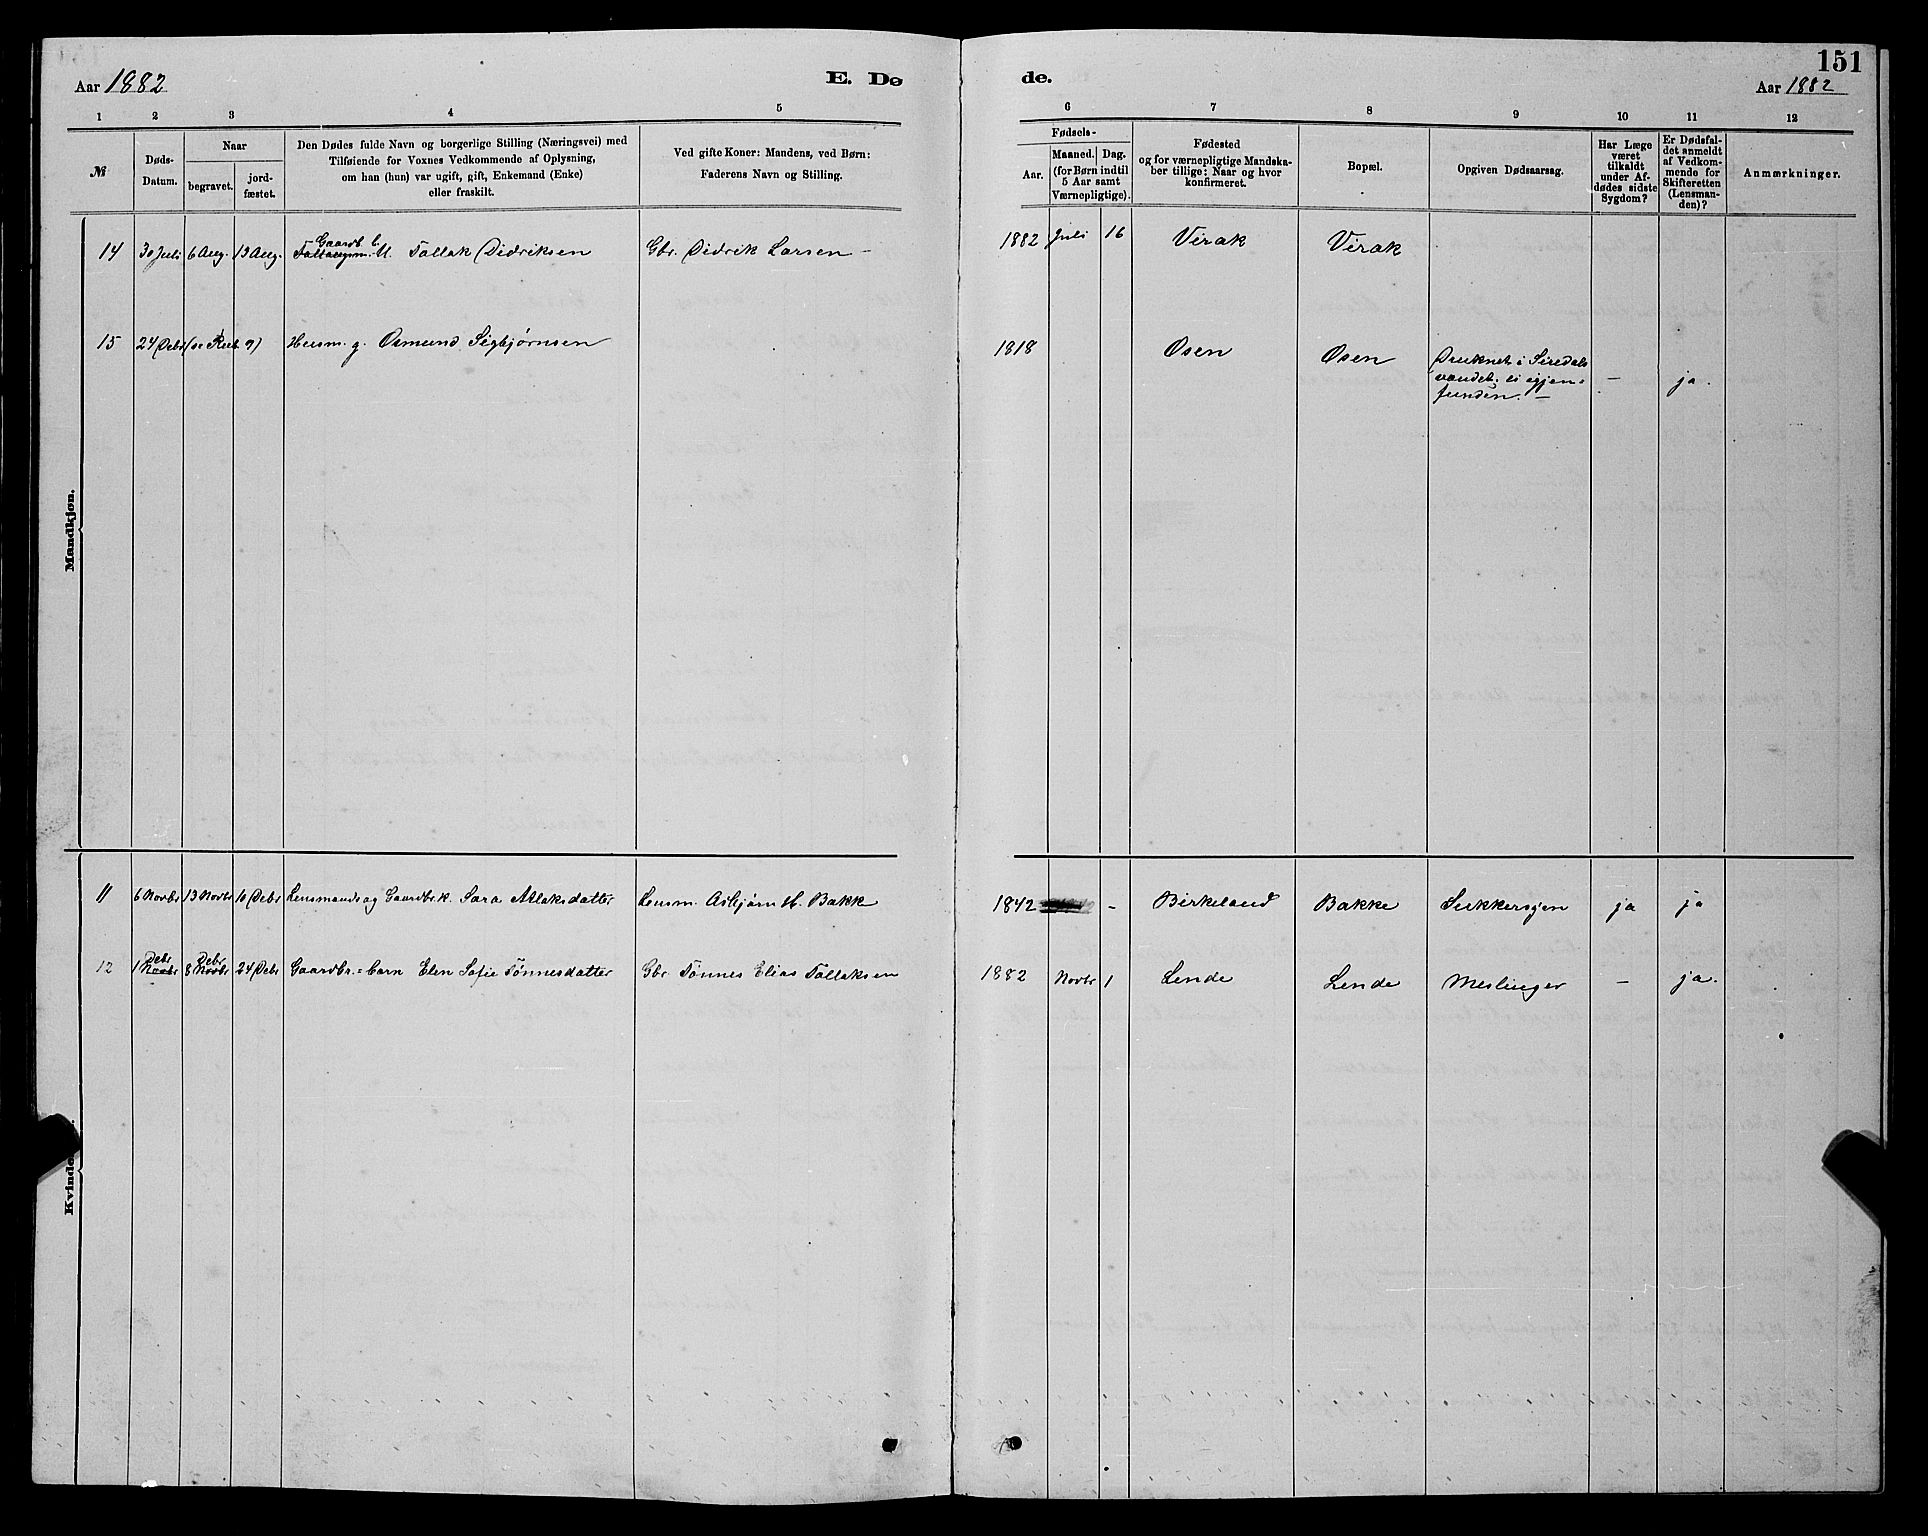 151
Aar 1882
E. Dø
de.
Aar 1882
1 2 3 4 5 6 7 8 9 10 11 12
№
Døds-
Datum.
Naar
begravet.
jord-
fæstet.
Den Dødes fulde Navn og borgerlige Stilling (Næringsvei) med
Tilføiende for Voxnes Vedkommende af Oplysning,
om han (hun) var ugift, gift, Enkemand (Enke)
eller fraskilt.
Ved gifte Koner: Mandens, ved Børn:
Faderens Navn og Stilling.
Fødsels-
Aar.
Maaned. Dag.
(for Børn indtil
5 Aar samt
Værnepligtige).
Fødested
og for værnepligtige Mandska-
ber tillige: Naar og hvor
konfirmeret.
Bopæl.
Opgiven Dødsaarsag.
Har Læge
været
tilkaldt
under Af-
dødes sidste
Sygdom?
Er Dødsfal-
det anmeldt
af Vedkom-
mende for
Skifteretten
(Lensman-
den)?
Anmærkninger.
Mandkjøn.
Gaardb. b.
14 30 Juli 6 Aug. 13 Aug. Tallak Didriksen Gbr. Didrik Larsen – 1882 Juli 16 Virak Virak
15 24 Debr (se Rub. 9) Husm. g. Osmund Sigbjørnsen 1818 Osen Osen Druknet i Siredals
vandet. ei igjen=
funden. – – ja.
Kvinde
11 6 Novbr 13 Novbr 10 Debr Lensmands og Gaardbr. k. Sara Atlaksdatter Lensm. Asbjørn H. Bakk 1842 - Birkeland Bakke Sukkersyen ja ja
Debr Debr
12 1 Novbr 8 Novbr 24 Debr Gaardbr.= barn Elen Sofie Tønnesdatter Gbr Tønnes Elias Tollaksen 1882 Novbr 1 Lende Lende Meslinger – ja.